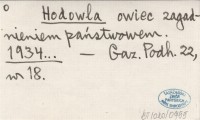 Hodowla owiec zagad-
nieniem państwowem.
1934... — Gaz. Podh. 22,
nr 18.